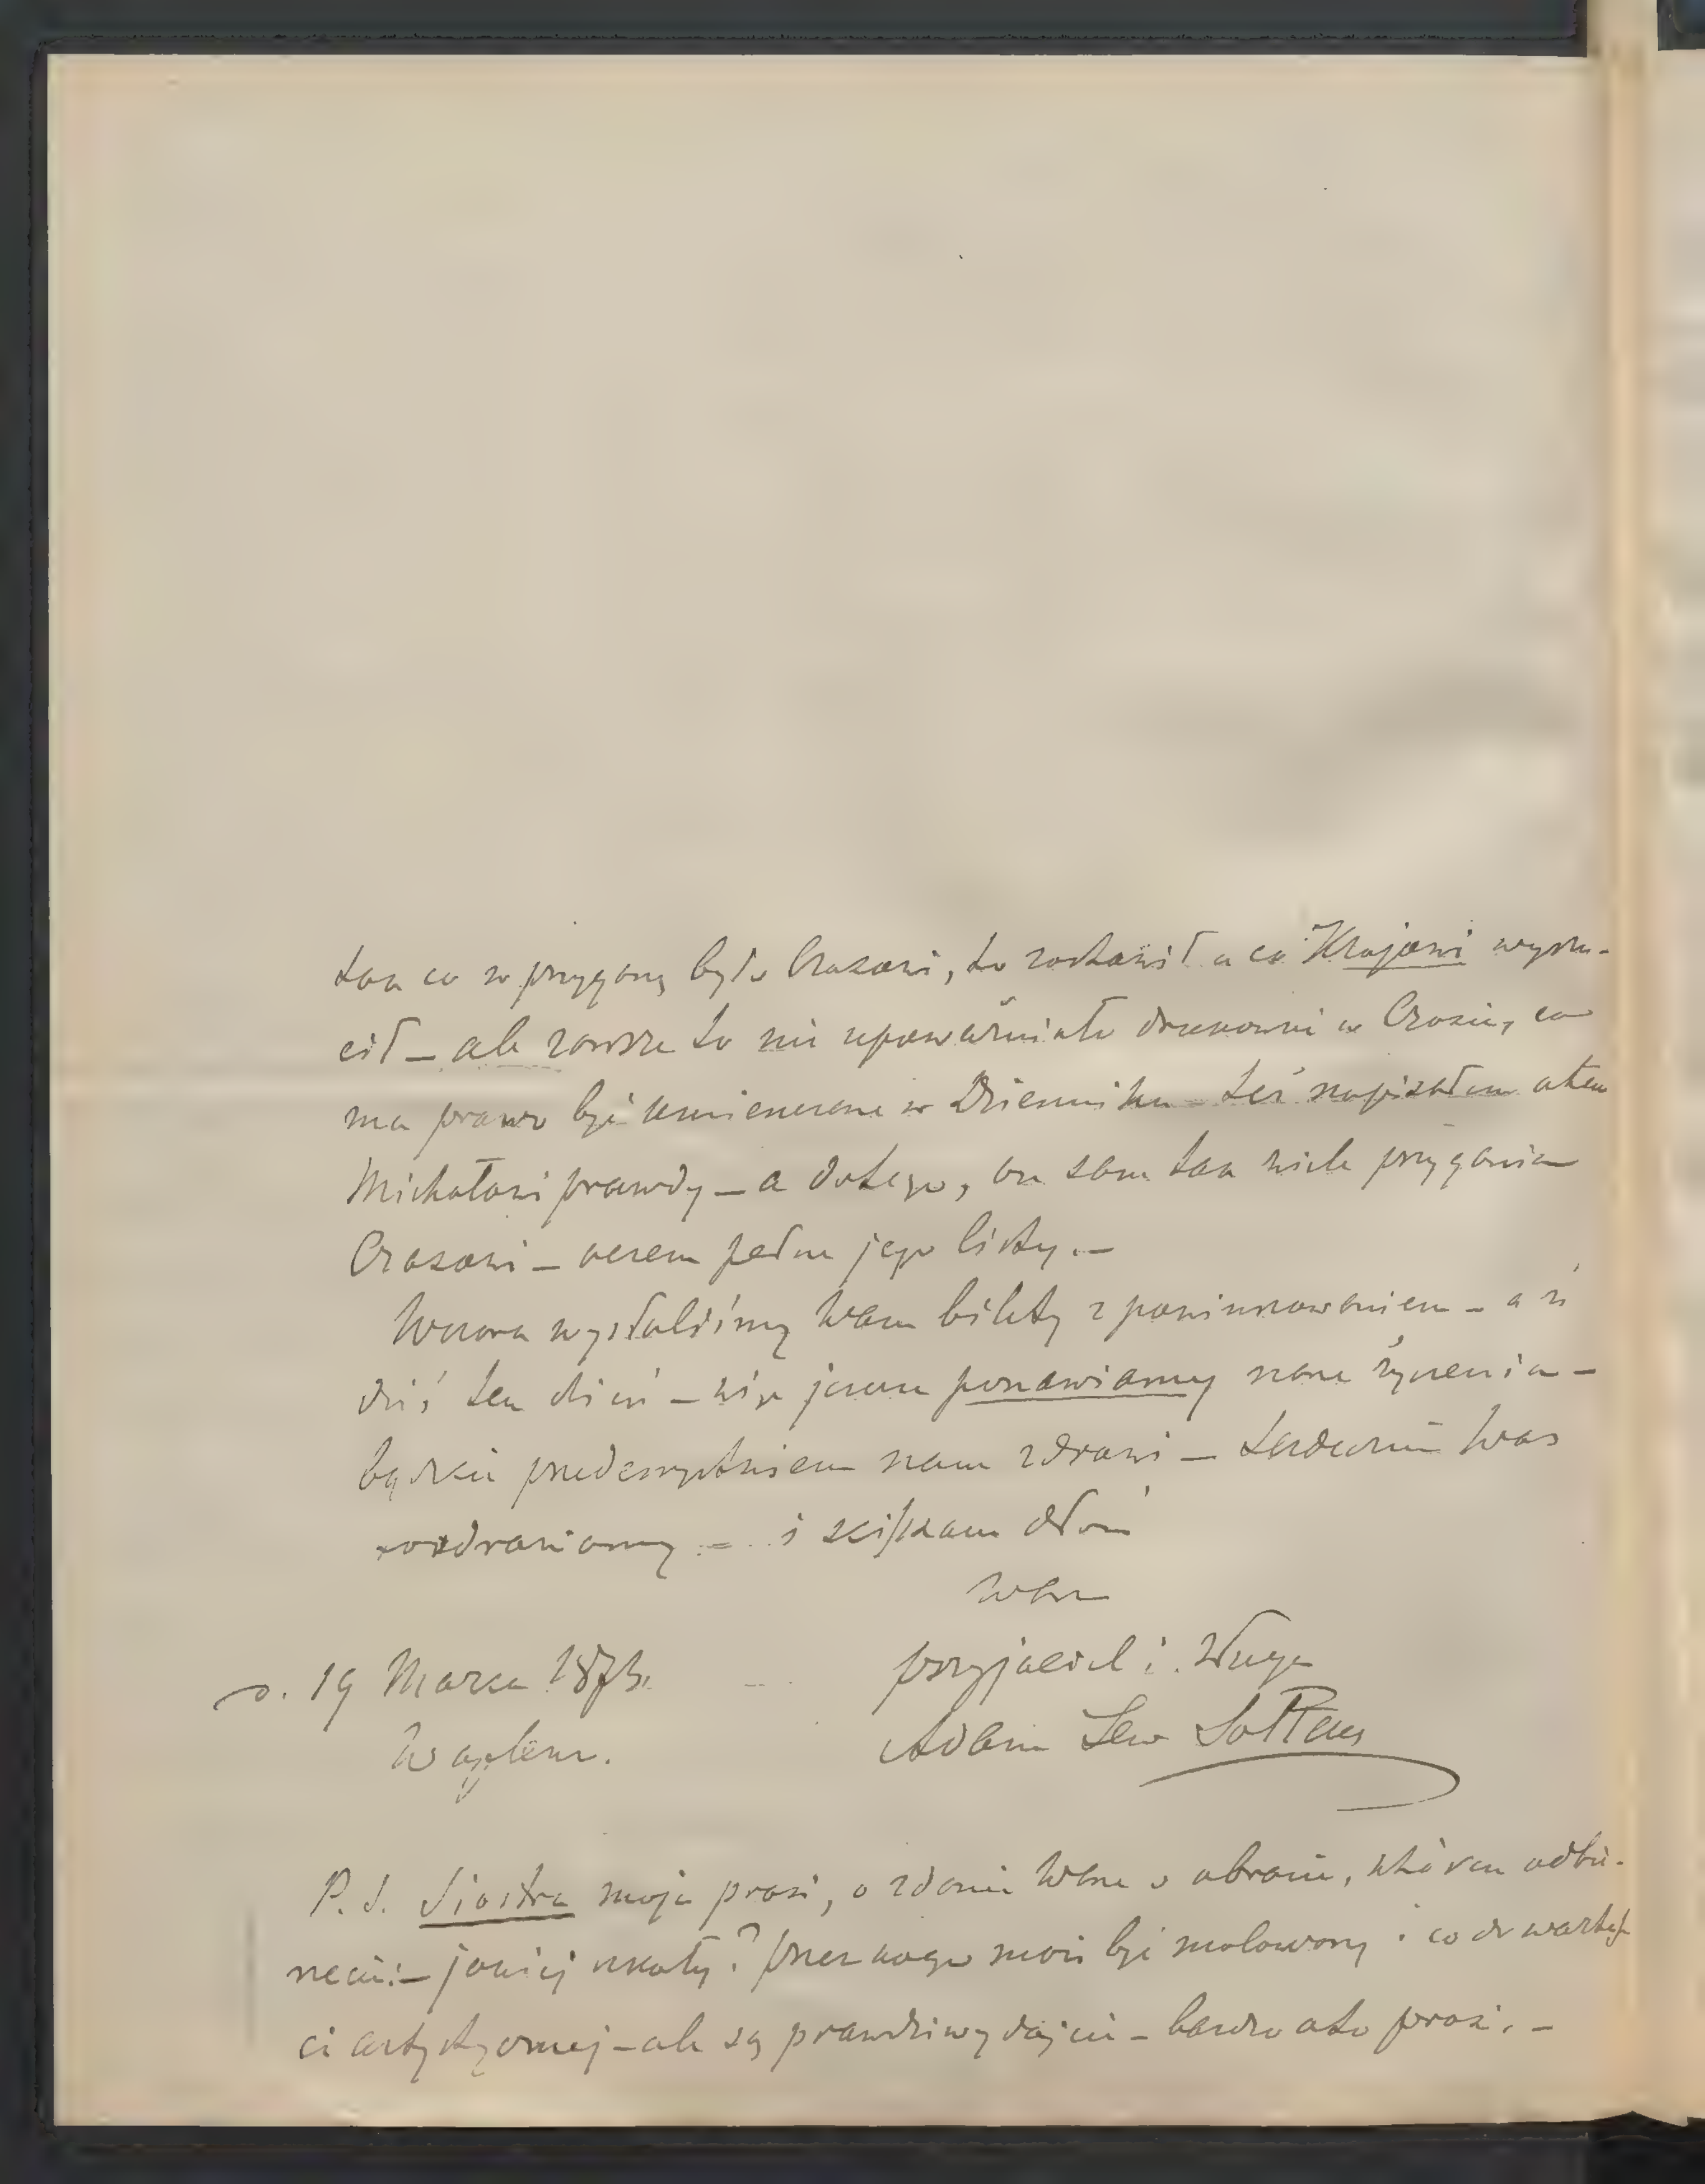 tak co w przyganę było Czasowi, to zostawił a co Krajowi wyrzu-
cił – ale zawsze to nie upoważniało drukowni w Czasie, co
ma prawo być umieszczone w Dzienniku – też napisałem
Michałowi prawdy – a do tego, on sam tak wiele przygania
Czasowi – czem pełne jego listy. –
Wczora wysłaliśmy Wam bilety z powinszowaniem – a iż
dziś ten dzień – więc jeszcze ponawiamy nasze życzenia –
bądźcie przedewszystkiem nam zdrowi – serdecznie Was
pozdrawiamy – i ściskam dłoń
Wasz
przyjaciel i sługa
Adam Lew Sołtan
d. 19 Marca 1873.
P. S. Siostra moja prosi, o zdanie Wasze o obrazie, któren odbie-
rzecie: – jakiej szkoły? przez kogo może być malowany i co do wartoś
ci artystycznej – ale są prawdziwy dajcie – bardzo oto prosi. –